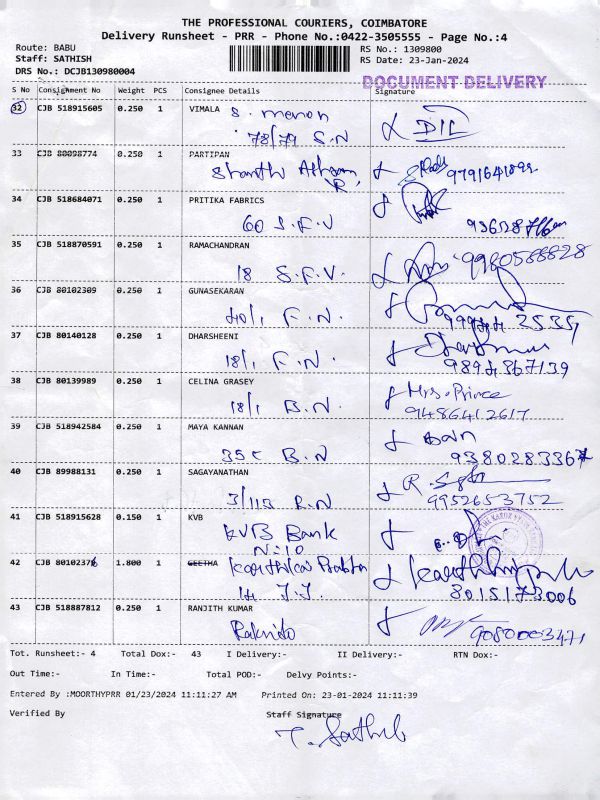 THE PROFESSIONAL COURIERS, COIMBATORE
Delivery Runsheet - PRR - Phone No.:0422-3505555 - Page No.:4
Route: BABU
RS No.: 1309800
Staff: SATHISH
RS Date: 23-Jan-2024
DRS No.: DCJB130980004
DOCUMENT DELIVERY
S No Consignment No Weight PCS Consignee Details Signature
32 CJB 518915605 0.250 1 VIMALA S. menon
78/79 S.N
33 CJB 80098774 0.250 1 PARTIPAN
Shanthi
34 CJB 518684071 0.250 1 PRITIKA FABRICS
60 S.F.V
35 CJB 518870591 0.250 1 RAMACHANDRAN
18 S.F.V. 9980568828
36 CJB 80102309 0.250 1 GUNASEKARAN
40/1 F.N.
37 CJB 80140128 0.250 1 DHARSHEENI
18/1 F.N. 9894867139
38 CJB 80139989 0.250 1 CELINA GRASEY Mrs. Prince
18/1 B.N 9486412617
39 CJB 518942584 0.250 1 MAYA KANNAN
35C B.N 9380283367
40 CJB 89988131 0.250 1 SAGAYANATHAN
3/113 R.N 9952653752
41 CJB 518915628 0.150 1 KVB
KVB Bank
N:10
42 CJB 80102376 1.800 1 GEETHA Karthika Prabha
14 J.J. 8015173006
43 CJB 518887812 0.250 1 RANJITH KUMAR
9080003471
Tot. Runsheet:- 4 Total Dox:- 43 I Delivery:- II Delivery:- RTN Dox:-
Out Time:- In Time:- Total POD:- Delvy Points:-
Entered By :MOORTHYPRR 01/23/2024 11:11:27 AM Printed On: 23-01-2024 11:11:39
Verified By Staff Signature
T. Sathish